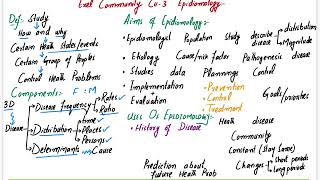 Exel Community Ch-3 Epidemiology:-
Def: study
How and why
Certain Health States/events
Certain Group of Peoples
Control Health Problems
Components: F : M
3D
Disease
Disease frequency
Rates
Ratio
Distribution
time
Places
Persons
Determinants
Cause
Aims of Epidemiology:-
Epidemiologist Population Study describe
distribution
disease
Magnitude
Etiology Cause/risk Factor Pathogenesis disease
Studies data Plannings Control
Implementation
Evaluation
Prevention
Control
Treatment
Goals/priorities
Uses Of Epidemology:-
History of Disease
Health disease
Community
Constant (Stay Same)
Changes
Short periods
long periods
Prediction about
future Health Prob